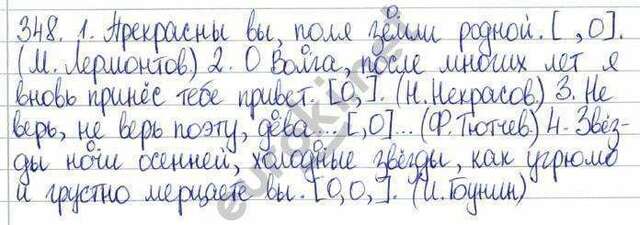 348. 1. Прекрасны вы, поля земли родной. [ , О].
(М. Лермонтов) 2. О Волга, после многих лет я
вновь принёс тебе привет. [О, ]. (Н. Некрасов.) 3. Не
верь, не верь поэту, дева... [ , О]... (Ф. Тютчев.) 4. Звёз-
ды ночи осенней, холодные звёзды, как угрюмо
и грустно мерцаете вы. [О, О, ]. (И. Бунин)
eurokin